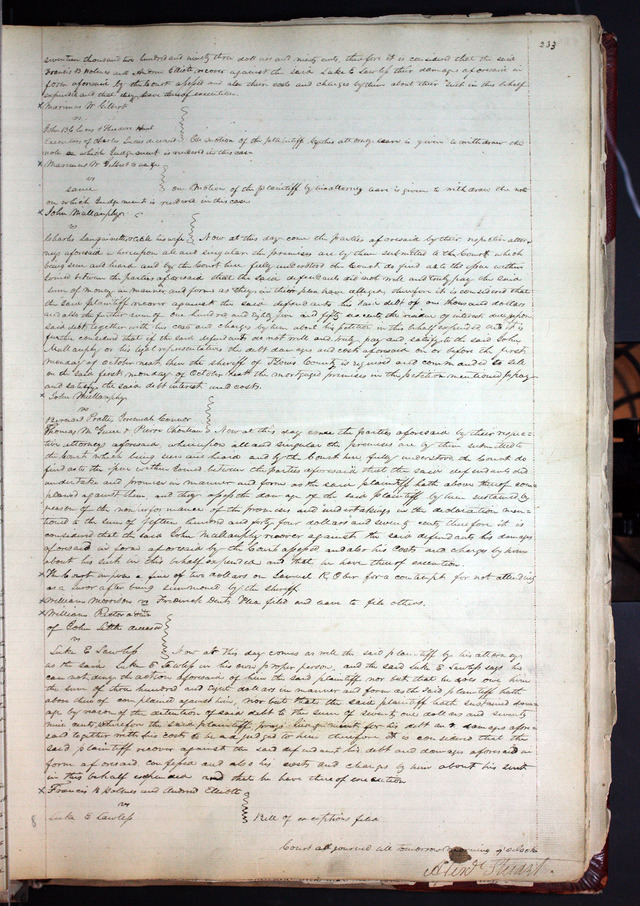 233
seventeen thousand two hundred and ninety three dollars and ninety cents, therefore it is considered that the said
Francis B Holmes and Andrew Elliott, recover against the said Luke E Lawless their damages aforesaid in
form aforesaid by the Court assessed and also their costs and charges by them about their suit in this behalf
expended and that they have thereof execution
x Marinus W. Gilbert
vs
John B C Lucas &
Executors of Charles Lucas deceased On motion of the plaintiff by his attorney leave is given to withdraw the
note on which Judgement is rendered in this case
x Marinus W Gilbert
vs
same on Motion of the plaintiff by his attorney leave is given to withdraw the note
on which Judgement is rendered in this case
x John Mullanphy
vs
Charles Sanguinette & his wife Now at this day come the parties aforesaid by their respective attor-
neys aforesaid whereupon all and singular the premises are by them submitted to the Court which
being seen and heard and by the Court here fully understood the Court do find as to the issue within
Joined between the parties aforesaid that the said defendants did not well and truly pay the said
sum of money in manner and form as they in their plea have alleged, therefore it is considered that
the said plaintiff recover against the said defendants his said debt of one thousand dollars
and also the further sum of one hundred and eighty five and fifty six cents the residue of interest due upon
said debt together with his costs and charges by him about his petition in this behalf expended and it is
further considered that if the said defendants do not well and truly pay and satisfy to the said John
Mullanphy or his legal representatives the debt damages and costs aforesaid on or before the first
monday of October next then the sheriff of St Louis County is required and commanded to sell
on the said first monday of October next the mortgaged premises in the petition mentioned to pay
and satisfy the said debt interest and costs.
x John Mullanphy
vs
Bernard Pratte, Jeremiah Connor
Thomas M Guire & Pierre Chouteau Now at this day come the parties aforesaid by their respec-
tive attorneys aforesaid, whereupon all and singular the premises are by them submitted to
the Court which being seen and heard and by the Court here fully understood the Court do
find as to the issue within Joined between the parties aforesaid that the said defendants did
undertake and promise in manner and form as the said plaintiff hath above thereof com-
plained against them, and they assess the damage of the said plaintiff by him sustained by
reason of the non performance of the promises and undertakings in the declaration men-
tioned to the sum of fifteen hundred and forty four dollars and seventy cents, therefore it is
considered that the said John Mullanphy recover against the said defendants his damages
aforesaid in form aforesaid by the Court assessed and also his Costs and charges by him
about his suit in this behalf expended and that he have thereof execution.
x The Court impose a fine of two dollars on Samuel R. Ober for a contempt for not attending
as a Juror after being summoned by the sheriff.
x William Morrison vs Frederick Dent Plea filed and leave to file others.
x William Rector
of John deceased
vs
Luke E Lawless Now at this day comes as well the said plaintiff by his attorney
as the said Luke E Lawless in his own proper person, and the said Luke E Lawless says he
can not deny the action aforesaid of him the said plaintiff nor but that he does owe him
the sum of three hundred and eight dollars in manner and form as the said plaintiff hath
above thereof complained against him, nor but that the said plaintiff hath sustained dam-
age by reason of the detention of said debt to the sum of seventy one dollars and seventy
nine cents, Wherefore the said plaintiff prays Judgement for his debt and damages afore-
said together with his costs to be adjudged to him therefore it is considered that the
said plaintiff recover against the said defendant his debt and damages aforesaid in
form aforesaid confessed and also his costs and charges by him about his suit
in this behalf expended and that he have thereof execution
x Francis B Holmes and Andrew Elliott
vs
Luke E Lawless Bill of exceptions filed
Court adjourned till tomorrow morning 9 oClock
Alexr Stuart.